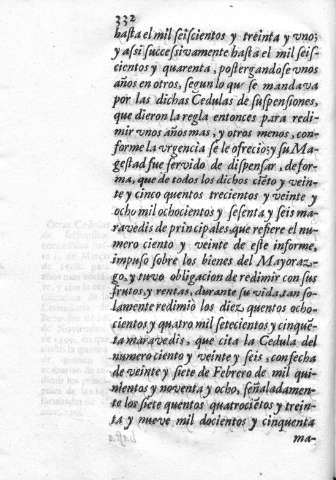 332
hasta el mil seiscientos y treinta y vno;
y assi successivamente hasta el mil seis-
cientos y quarenta, postergandose vnos
años en otros, segun lo que se mandava
por las dichas Cedulas de suspensiones,
que dieron la regla entonces para redi-
mir vnos años mas, y otros menos, con-
forme la vrgencia se le ofrecio; y su Ma-
gestad fue servido de dispensar, de for-
ma, que de todos los dichos ciẽto y vein-
te y cinco quentos trecientos y veinte y
ocho mil ochocientos y sesenta y seis ma-
ravedis de principales, que refiere el nu-
mero ciento y veinte de este informe,
impuso sobre los bienes del Mayoraz-
go, y tuvo obligacion de redimir con sus
frutos, y rentas, durante su vida, tan so-
lamente redimiò los diez quentos ocho-
cientos y quatro mil setecientos y cinquẽ-
ta maravedis, que cita la Cedula del
numero ciento y veinte y seis, con fecha
de veinte y siete de Febrero de mil qui-
nientos y noventa y ocho, señaladamen-
te los siete quentos quatrociẽtos y trein-
ta y nueve mil docientos y cinquenta
ma-